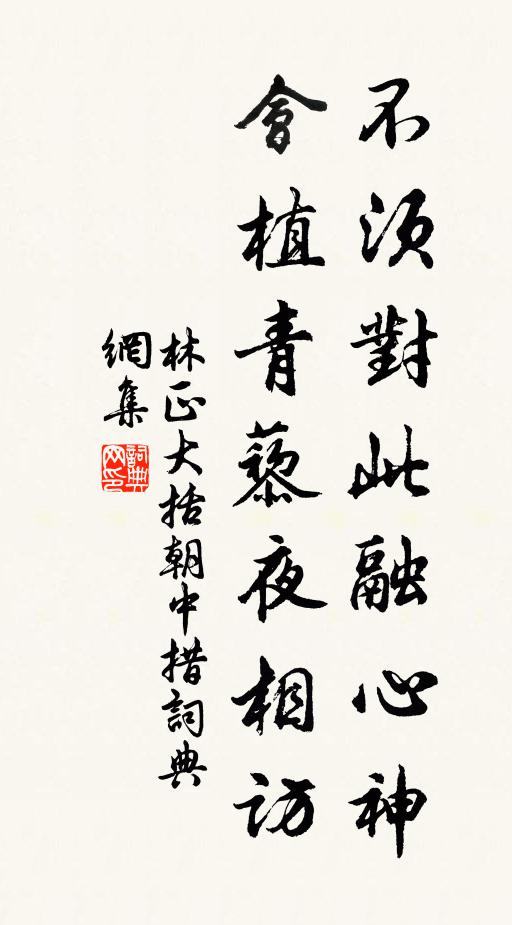 不須對此融心神
會植青藜夜相訪
林正大括朝中措詞典
網集
詞典
网印